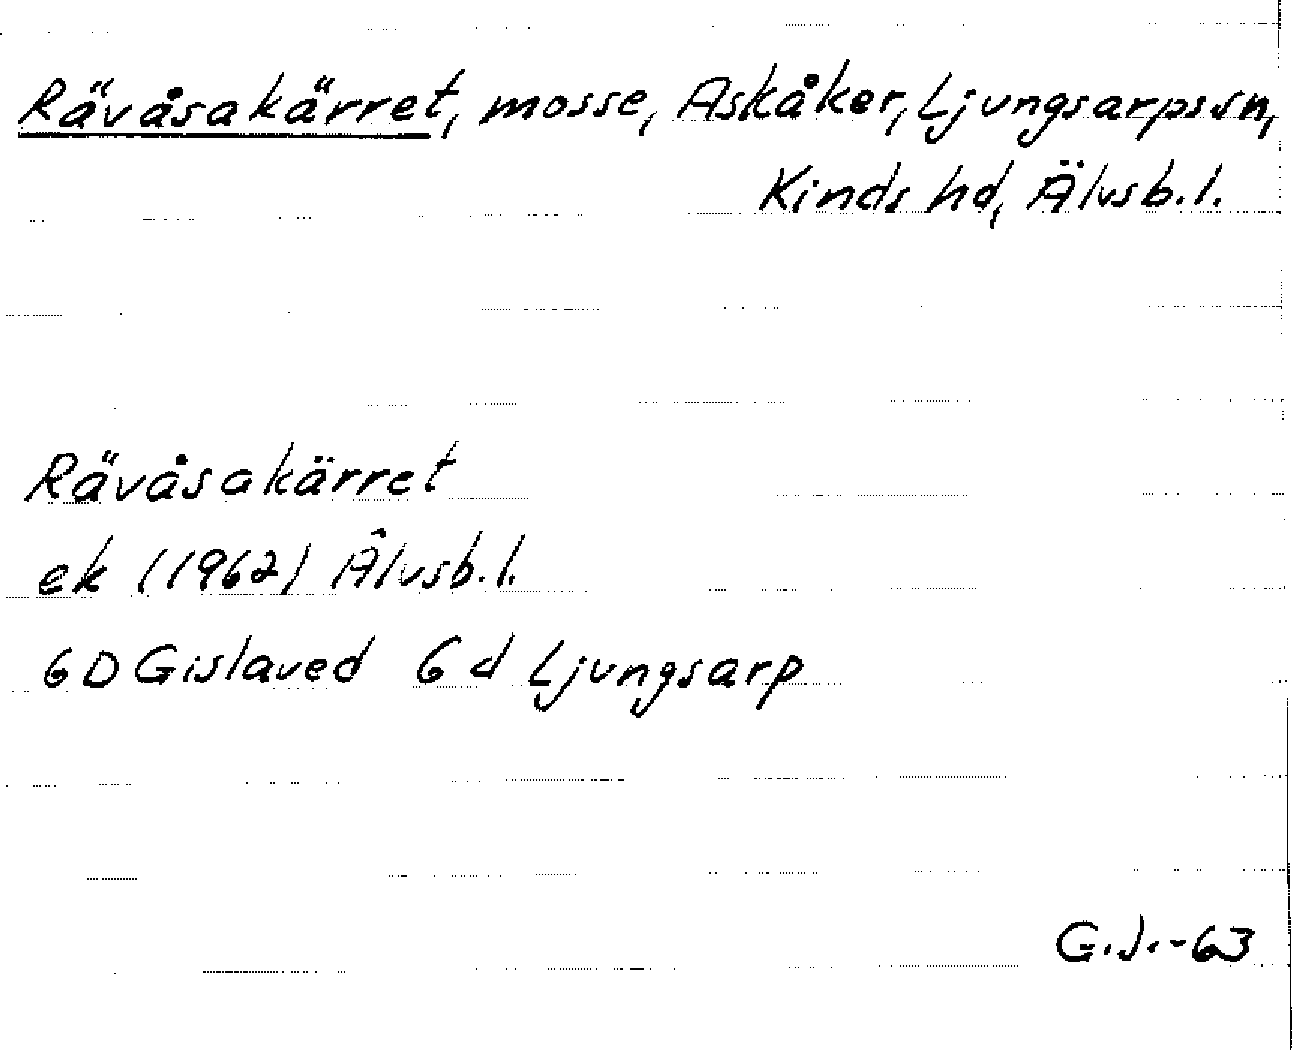 Rävåsakärret, mosse, Askåker, Ljungsarps sn,
Kinds hd, Älvsb.l.
Rävåsakärret
ek (1962) Älvsb.l.
6D Gislaved 6d Ljungsarp
G.J.-63